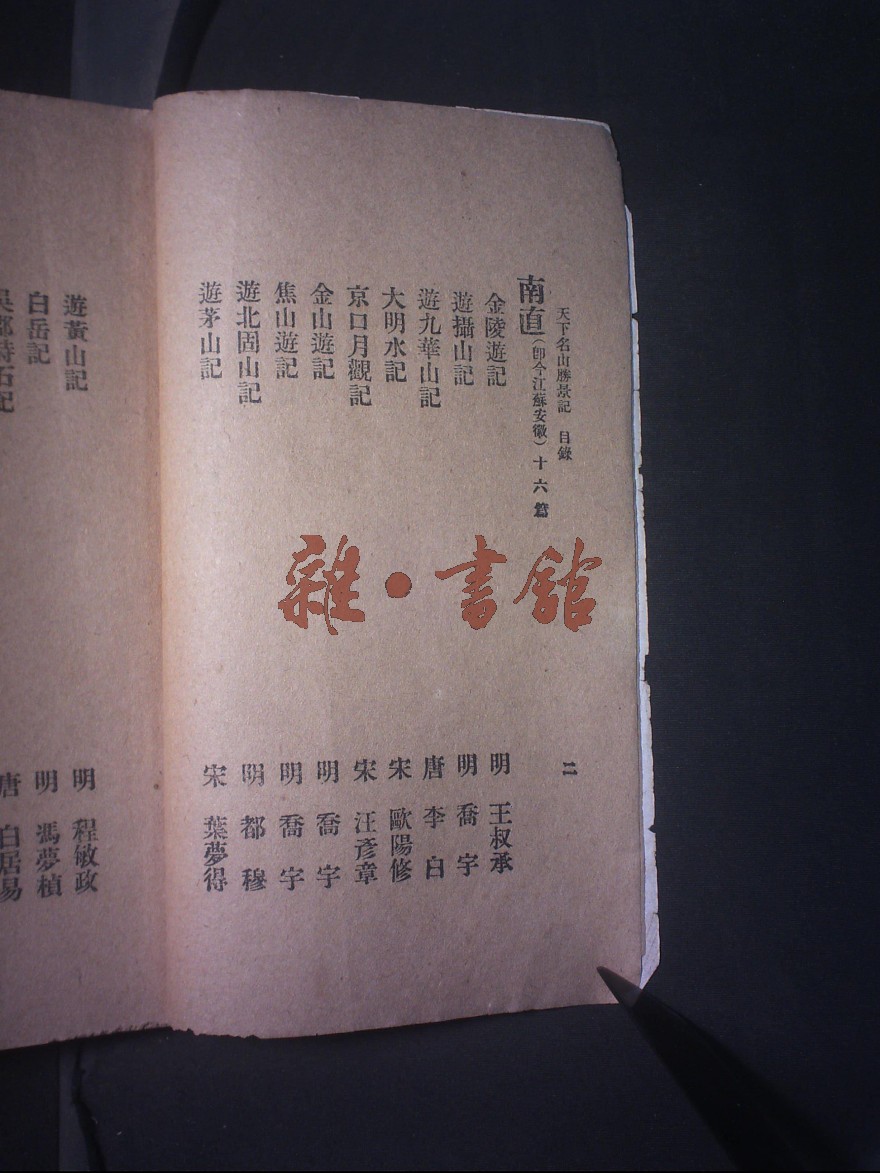 天下名山勝景記　目錄
二
南直（卽今江蘇安徽）十六篇
金陵遊記　明　王叔承
遊攝山記　明　喬宇
遊九華山記　唐　李白
大明水記　宋　歐陽修
京口月觀記　宋　汪彥章
金山遊記　明　喬宇
焦山遊記　明　喬宇
遊北固山記　明　都穆
遊茅山記　宋　葉夢得
遊黃山記　明　程敏政
白岳記　明　馮夢楨
唐　白居易
雜·書館